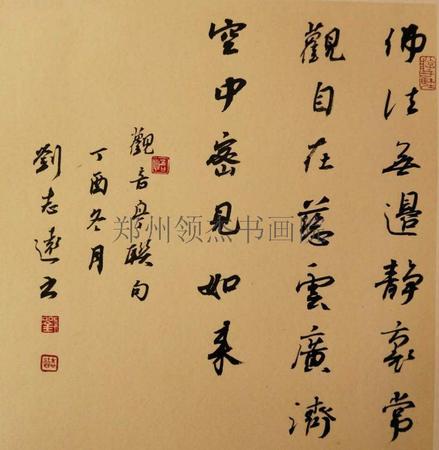 佛法無邊靜裏常
觀自在慈雲廣濟
空中密見如来
觀音聯句
丁酉冬月
劉志遠书
郑州领杰书画